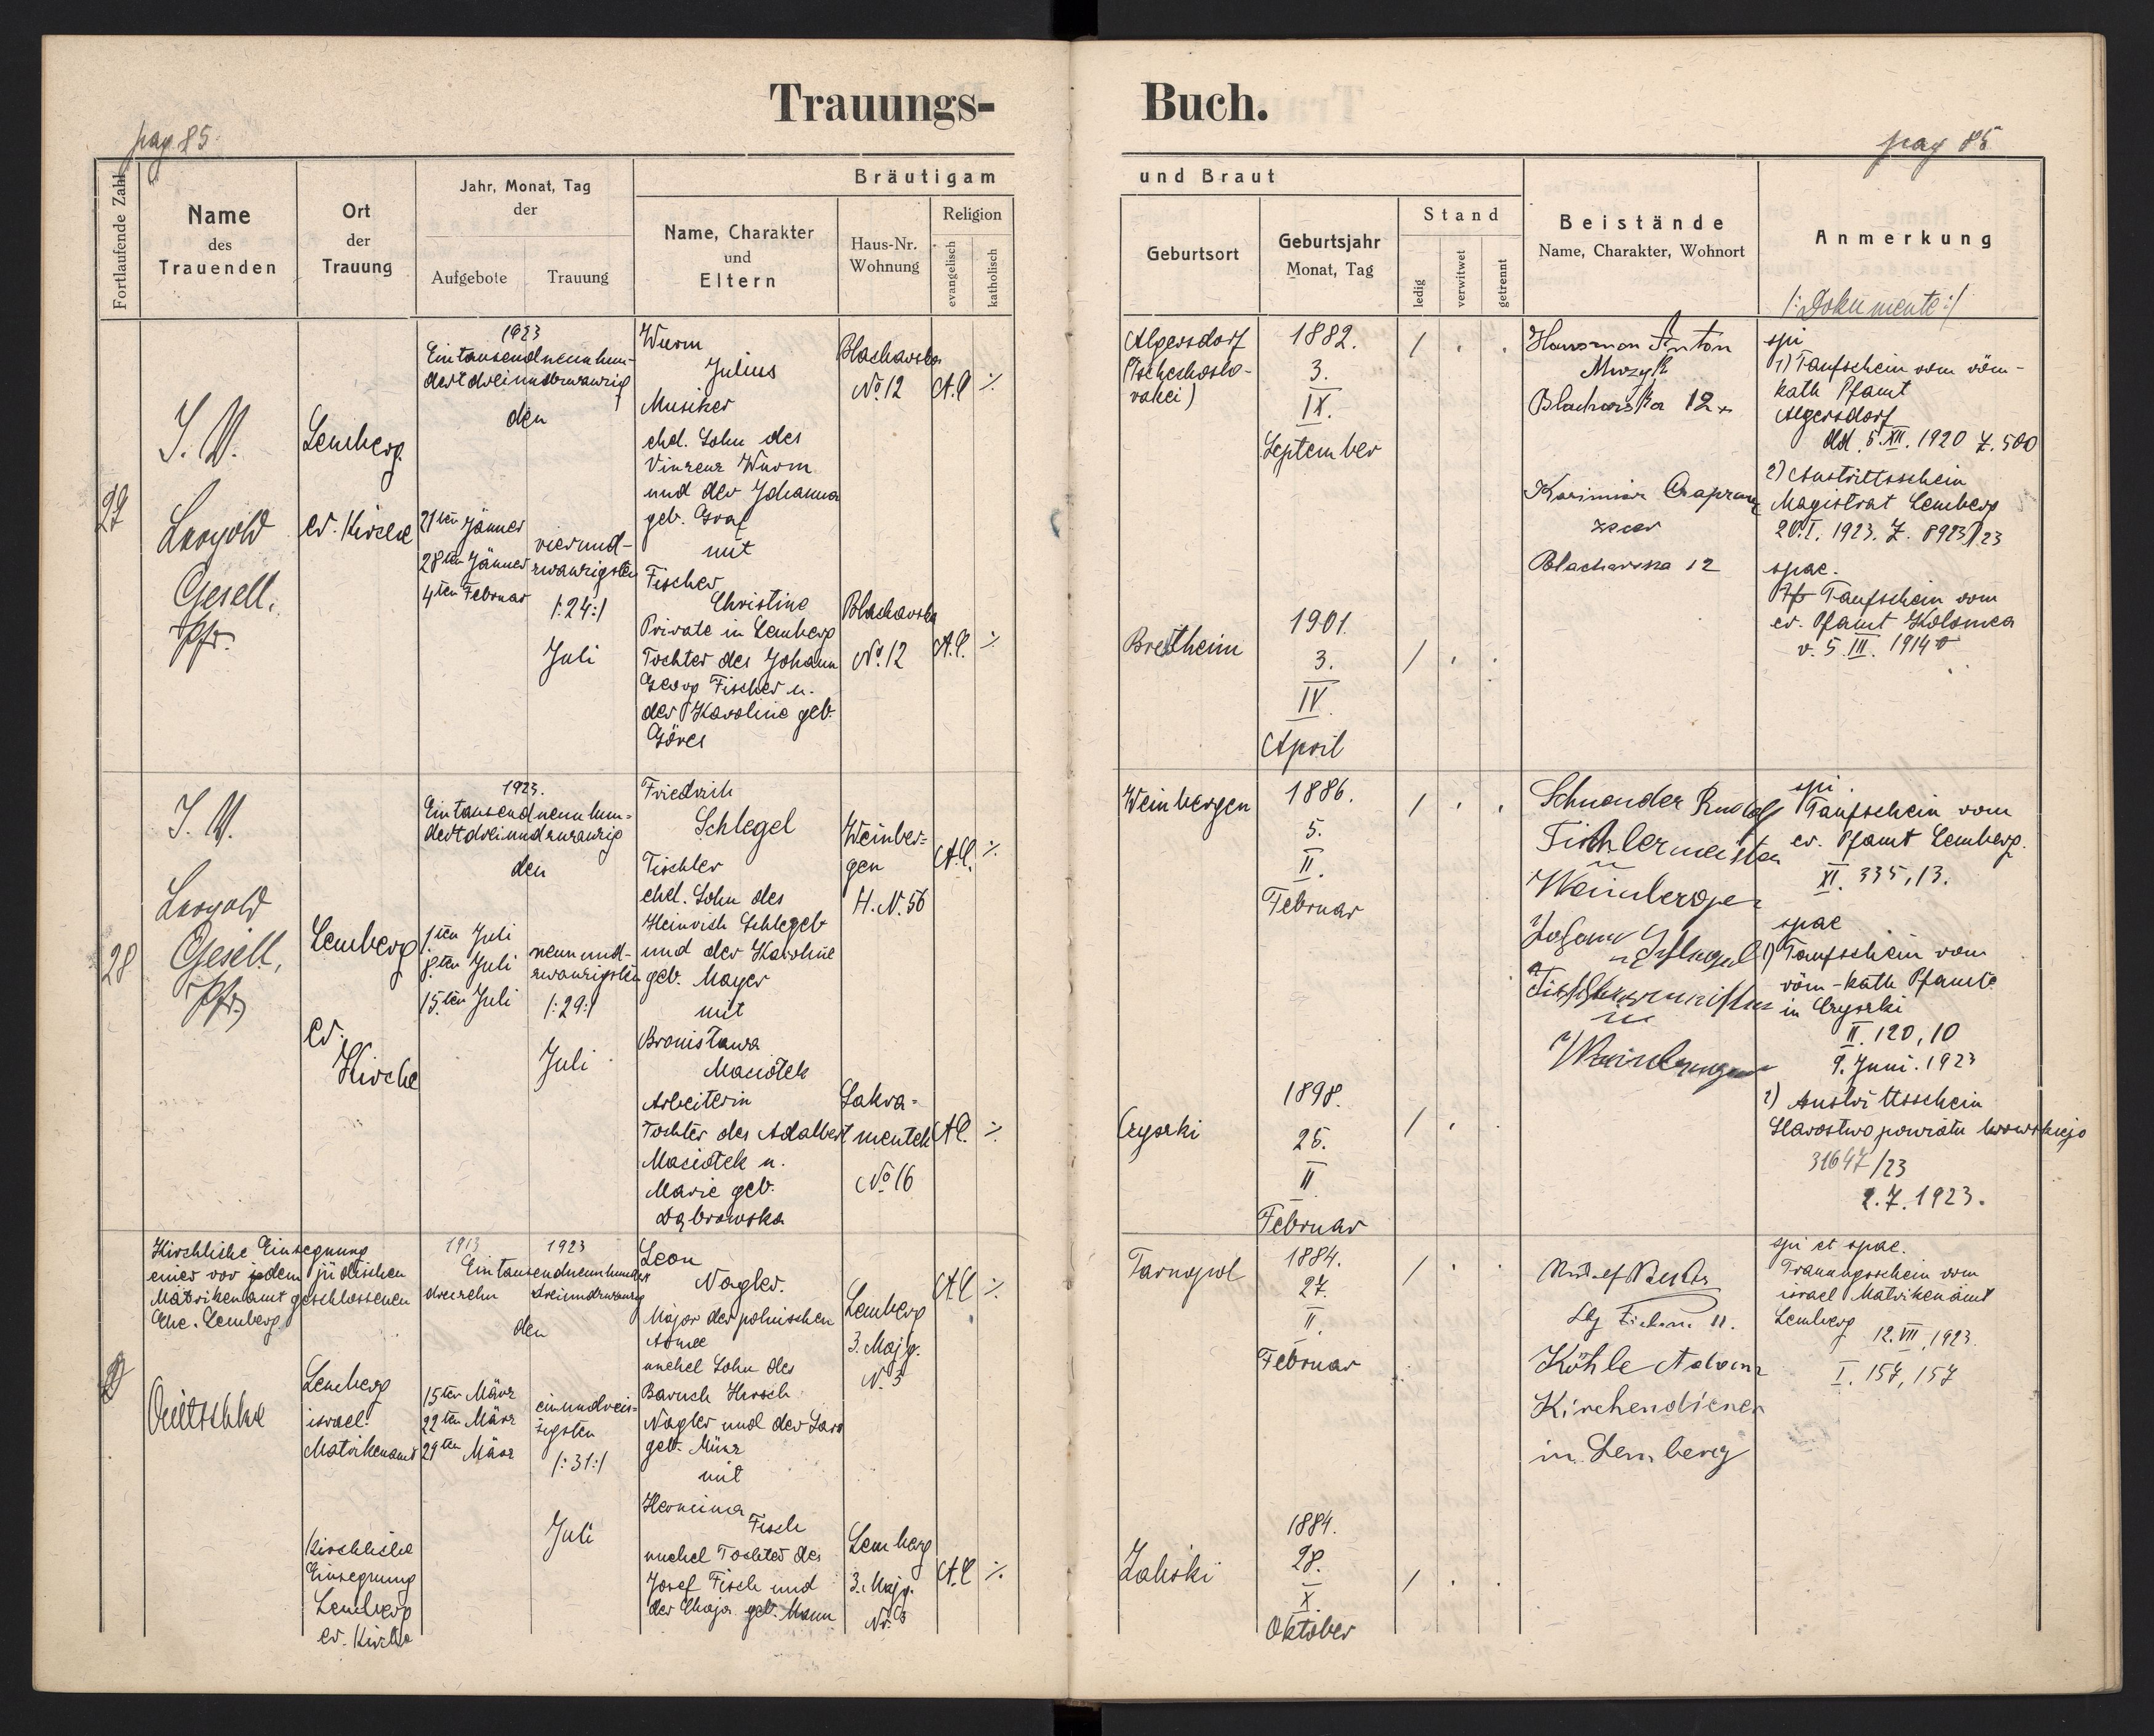 Trauungs-
Buch.
pag 85.
pag 85
Fortlaufende Zahl
Name
des
Trauenden
Ort
der
Trauung
Jahr, Monat, Tag
der
Aufgebote
Trauung
Bräutigam
Name, Charakter
und
Eltern
Haus-Nr.
Wohnung
Religion
evangelisch
katholisch
und Braut
Geburtsort
Geburtsjahr
Monat, Tag
Stand
ledig
verwitwet
getrennt
Beistände
Name, Charakter, Wohnort
Anmerkung
/:Dokumente:/
27
I. V.
Leopold
Gesell,
Pfr.
Lemberg
ev. Kirche
1923
Eintausendneunhun-
dertdreiundzwanzig
den
21ten Jänner
28ten Jänner
4ten Februar
vierund-
zwanzigsten
/:24:/
Juli
Wurm
Julius
Musiker
ehel. Sohn des
Vinzenz Wurm
und der Johanna
geb. Graf
mit
Fischer
Christine
Private in Lemberg
Tochter des Johann
Georg Fischer u.
der Karoline geb.
Göres
Blacharska
No 12
A.C. ٪
Blacharska
No 12
A.C. ٪
Algersdorf
(Tschechoslo-
vakei)
1882.
3.
IX.
September
/ . .
Bretheim
1901.
3.
IV.
April
/ . .
Hausman Anton
Muzyk
Blacharska 12
Kazimierz
Blacharska 12
spi
1) Taufschein vom röm-
kath Pfamt
Algersdorf
dd. 5. XII. 1920 Z. 500
2) Austrittsschein
Magistrat Lemberg
20. I. 1923. Z. 8923/23
spae.
Taufschein vom
ev. Pfamt Kolomea
v. 5. III. 1914
28
I. V.
Leopold
Gesell,
Pfr.
Lemberg
ev.
Kirche
1923.
Eintausendneunhun-
dertdreiundzwanzig
den
1ten Juli
8ten Juli
15ten Juli
neunund-
zwanzigsten
/:29:/
Juli
Friedrich
Schlegel
Tischler
ehel. Sohn des
Heinrich Schlegel
und der Karoline
geb. Mayer
mit
Bronisława
Maciołek
Arbeiterin
Tochter des Adalbert
Maciołek u.
Marie geb.
Dąbrowska
Weinber-
gen
H. N. 56
A.C. ٪
Sakra-
mentek
No 16
A.C. ٪
Weinbergen
1886.
5.
II.
Februar
/ . .
Czyszki
1898.
25.
II
Februar
/ .
Schneider Rudolf
Tischlermeister
in
Weinbergen
Johann Schlegel
Tischlermeister
in
Weinbergen
spi.
Taufschein vom
ev. Pfamt Lemberg.
XI. 335, 13.
spae
1) Taufschein vom
röm-kath Pfamte
in Czyszki
II. 120, 10
9. Juni. 1923
2) Austrittsschein
Starostwo powiatu lwowskiego
31647/23
2. 7. 1923.
Kirchliche Einsegnung
einer vor dem jüdischen
Matrikenamt geschlossenen
Ehe. Lemberg
Lemberg
israel.
Matrikenamt
Kirchliche
Einsegnung
Lemberg
ev. Kirche
1913
1923
Eintausendneunhundert
dreizehn
dreiundzwanzig
den
15ten März
22ten März
29ten März
einunddreis-
sigsten
/:31:/
Juli
Leon
Nagler.
Major der polnischen
Armee
unehel Sohn des
Baruch Hersch
Nagler und der Sara
geb. Münz
mit
Hermina
Fisch
unehel Tochter des
Josef Fisch und
der Chaja geb. Mann
Lemberg
3. Majg.
N. 3
A.C ٪
Lemberg
3. Majg.
Nr. 3
A.C ٪
Tarnopol
1884.
27.
II.
Februar
/ . .
Zaliski
1884.
28.
X.
Oktober
/ . .
Köhle Adam
Kirchendiener
in Lemberg
spi et spae.
Trauungsschein vom
israel Matrikenamt
Lemberg
12. VII. 1923.
I. 157, 157